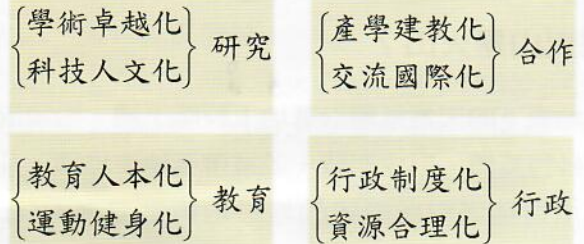 學術卓越化
科技人文化
研究
產學建教化
交流國際化
合作
教育人本化
運動健身化
教育
行政制度化
資源合理化
行政